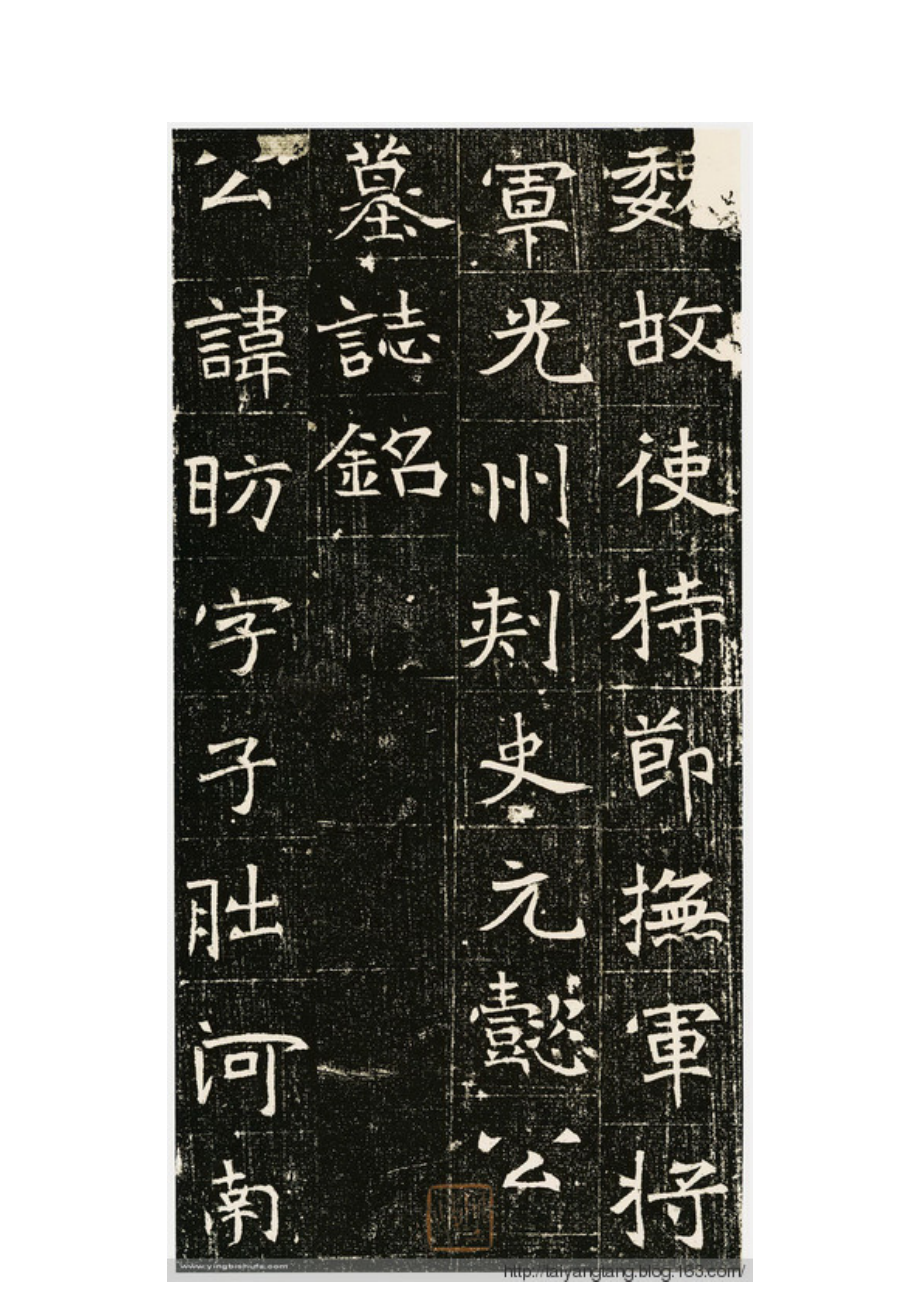 魏故使持節撫軍将
軍光州刺史元懿公
墓誌銘
公諱昉字子朏河南
www.yingbishufa.com
http://taiyangtang.blog.163.com/